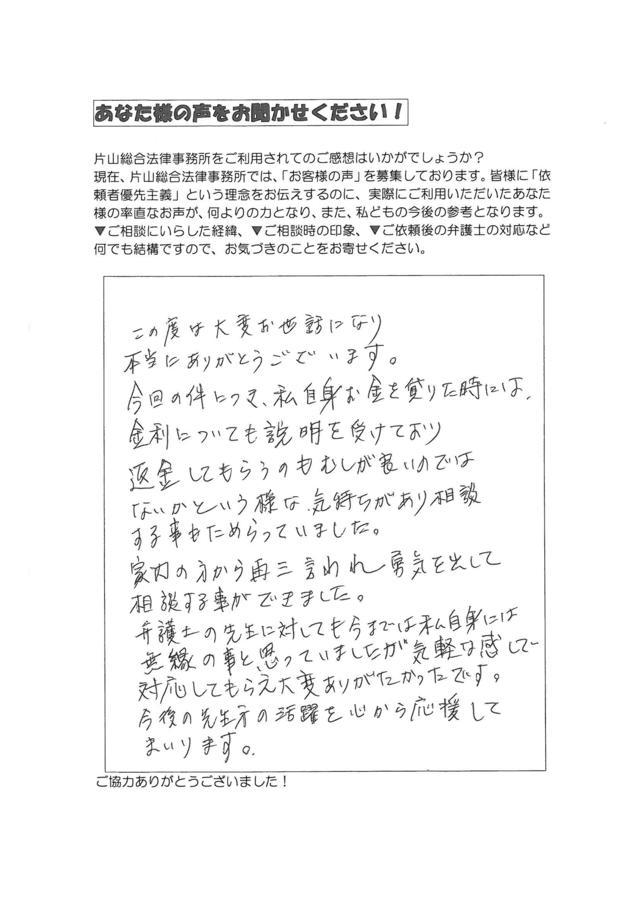 あなた様の声をお聞かせください!
片山総合法律事務所をご利用されてのご感想はいかがでしょうか?
現在、片山総合法律事務所では、「お客様の声」を募集しております。皆様に「依
頼者優先主義」という理念をお伝えするのに、実際にご利用いただいたあなた
様の率直なお声が、何よりの力となり、また、私どもの今後の参考となります。
▼ご相談にいらした経緯、▼ご相談時の印象、▼ご依頼後の弁護士の対応など
何でも結構ですので、お気づきのことをお寄せください。
この度は大変お世話になり
本当にありがとうございます。
今回の件につき、私自身お金を貸りた時には、
金利についても説明を受けており
返金してもらうのもむしが良いのでは
ないかという様な、気持ちがあり相談
する事もためらっていました。
家内の方から再三言われ勇気を出して
相談する事ができました。
弁護士の先生に対しても今までは私自身には
無縁の事と思っていましたが気軽な感じで
対応してもらえ大変ありがたかったです。
今後の先生方の活躍を心から応援して
まいります。
ご協力ありがとうございました!